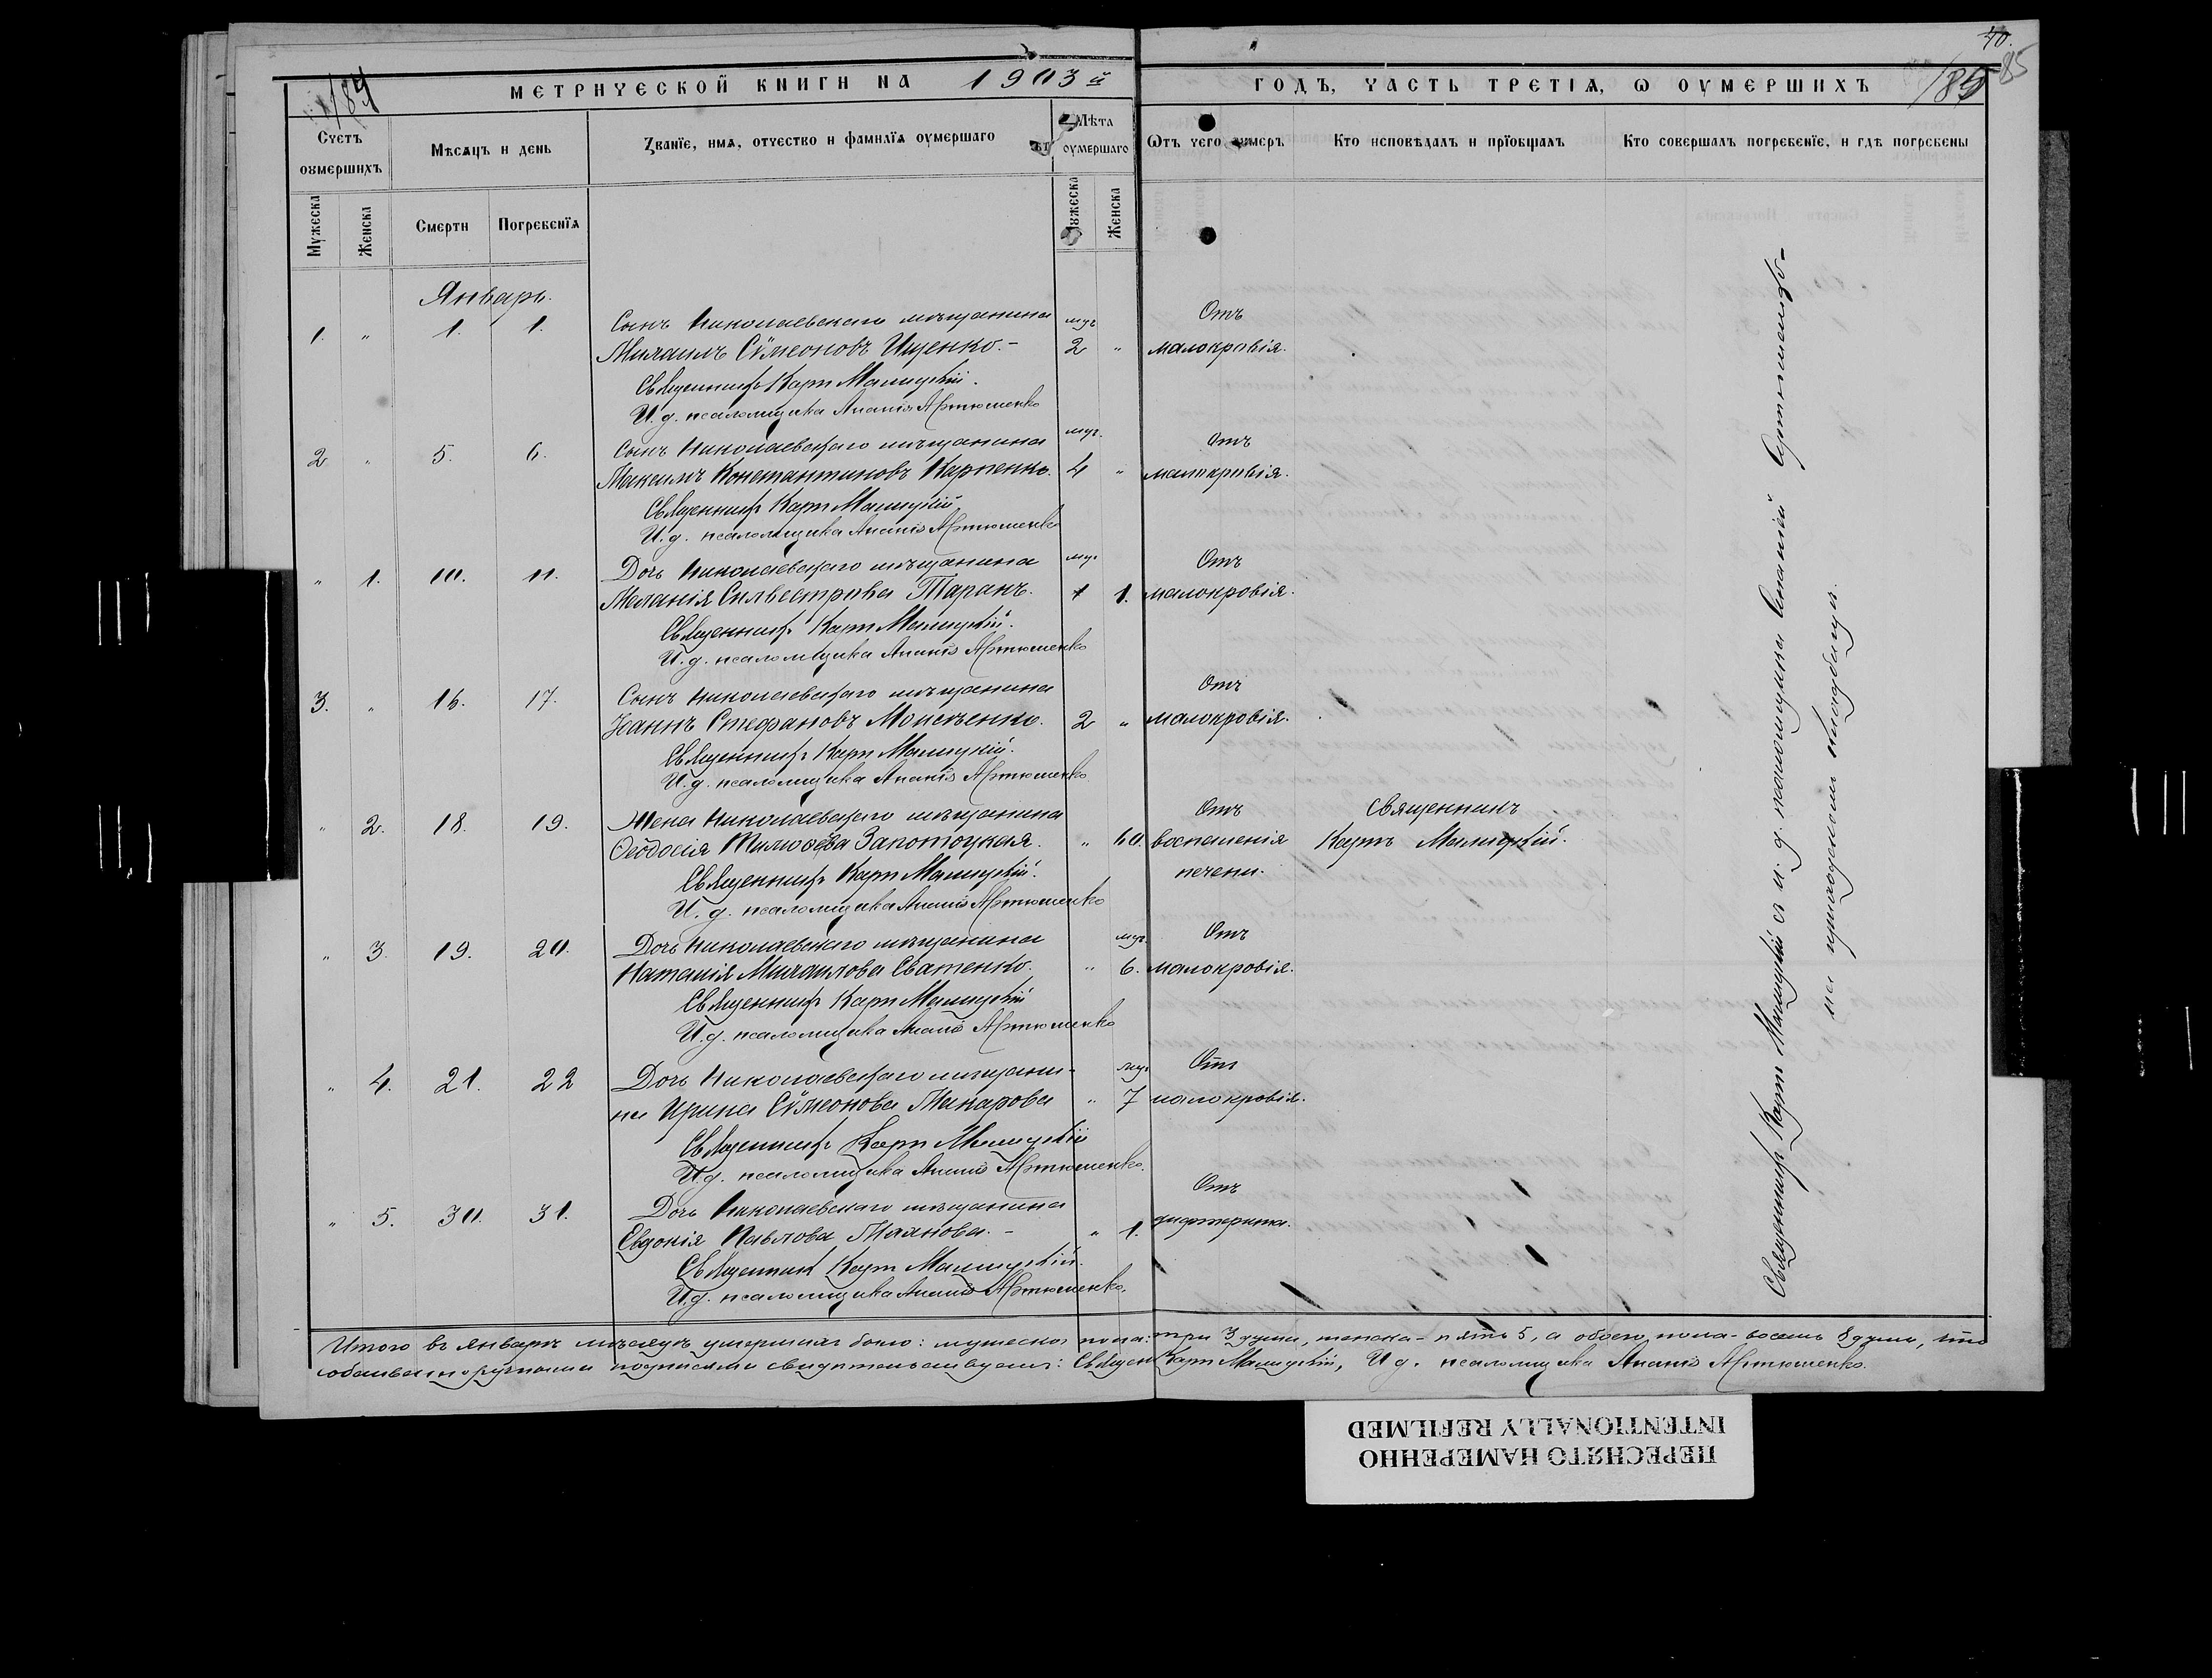 40.
184 МЕТРИЧЕСКОЙ КНИГИ НА 1903й ГОДЪ, ЧАСТЬ ТРЕТІѦ, Ѡ ОУМЕРШИХЪ 185 85
Счетъ оумершихъ
Мѣсѧцъ и день
Званїе, имѧ, отчество и фамилїѧ оумершаго
Лѣта оумершаго
Ѿтъ чего оумеръ
Кто исповѣдалъ и прїобщалъ
Кто совершалъ погребенїе, и гдѣ погребены
Мужеска
Женска
Смерти
Погребенїѧ
Мужеска
Женска
Январь.
1. " 1. 1. Сынъ Николаевскаго мѣщанина мѣс. Отъ
Михаилъ Сѵмеоновъ Ищенко.- 2 " малокровія.
Священникъ Карпъ Малицкій.
И. д. псаломщика Ананія Артюшенко
2 " 5. 6. Сынъ Николаевскаго мѣщанина мѣс. Отъ
Максимъ Константиновъ Карпенко. 4 " малокровія.
Священникъ Карпъ Малицкій
И. д. псаломщика Ананія Артюшенко
" 1. 10. 11. Дочь Николаевскаго мѣщанина мѣс. Отъ
Меланія Сильвестрова Таранъ. 1. малокровія.
Священникъ Карпъ Малицкій.
И. д. псаломщика Ананія Артюшенко
3. " 16. 17. Сынъ Николаевскаго мѣщанина Отъ
Іоаннъ Стефановъ Моисѣенко. 2 " малокровія.
Священникъ Карпъ Малицкій.
И. д. псаломщика Ананія Артюшенко
" 2. 18. 19. Жена Николаевскаго мѣщанина Отъ Священникъ
Ѳеодосія Запотоцкая. " 60. воспаленія Карпъ Малицкій.
Священникъ Карпъ Малицкій. печени.
И. д. псаломщика Ананія Артюшенко
" 3. 19. 20. Дочь Николаевскаго мѣщанина мѣс. Отъ
Наталія Михаилова Сватенко. " 6. малокровія.
Священникъ Карпъ Малицкій
И. д. псаломщика Ананія Артюшенко
" 4. 21. 22 Дочь Николаевскаго мѣщани- мѣс Отъ
на Ирина Сѵмеонова Макарова " 7 малокровія.
Священникъ Карпъ Малицкій
И. д. псаломщика Ананія Артюшенко.
" 5. 30. 31. Дочь Николаевскаго мѣщанина Отъ
Евдокія Павлова - " 1. дифтерита.
Священникъ Карпъ Малицкій.
И. д. псаломщика Ананія Артюшенко.
Священникъ Карпъ Малицкій съ и. д. псаломщика Ананіей Артюшенко-
на приходскомъ кладбищѣ.
Итого въ Январѣ мѣсяцѣ умершихъ было: мужеска пола: три 3 души, женска - пять 5, а обоего пола - восемь 8 душъ, что
собственноручными подписями свидѣтельствуемъ: Священ Карпъ Малицкій, И. д. псаломщика Ананія Артюшенко.
ПЕРЕСНЯТО НАМЕРЕННО
INTENTIONALLY REFILMED